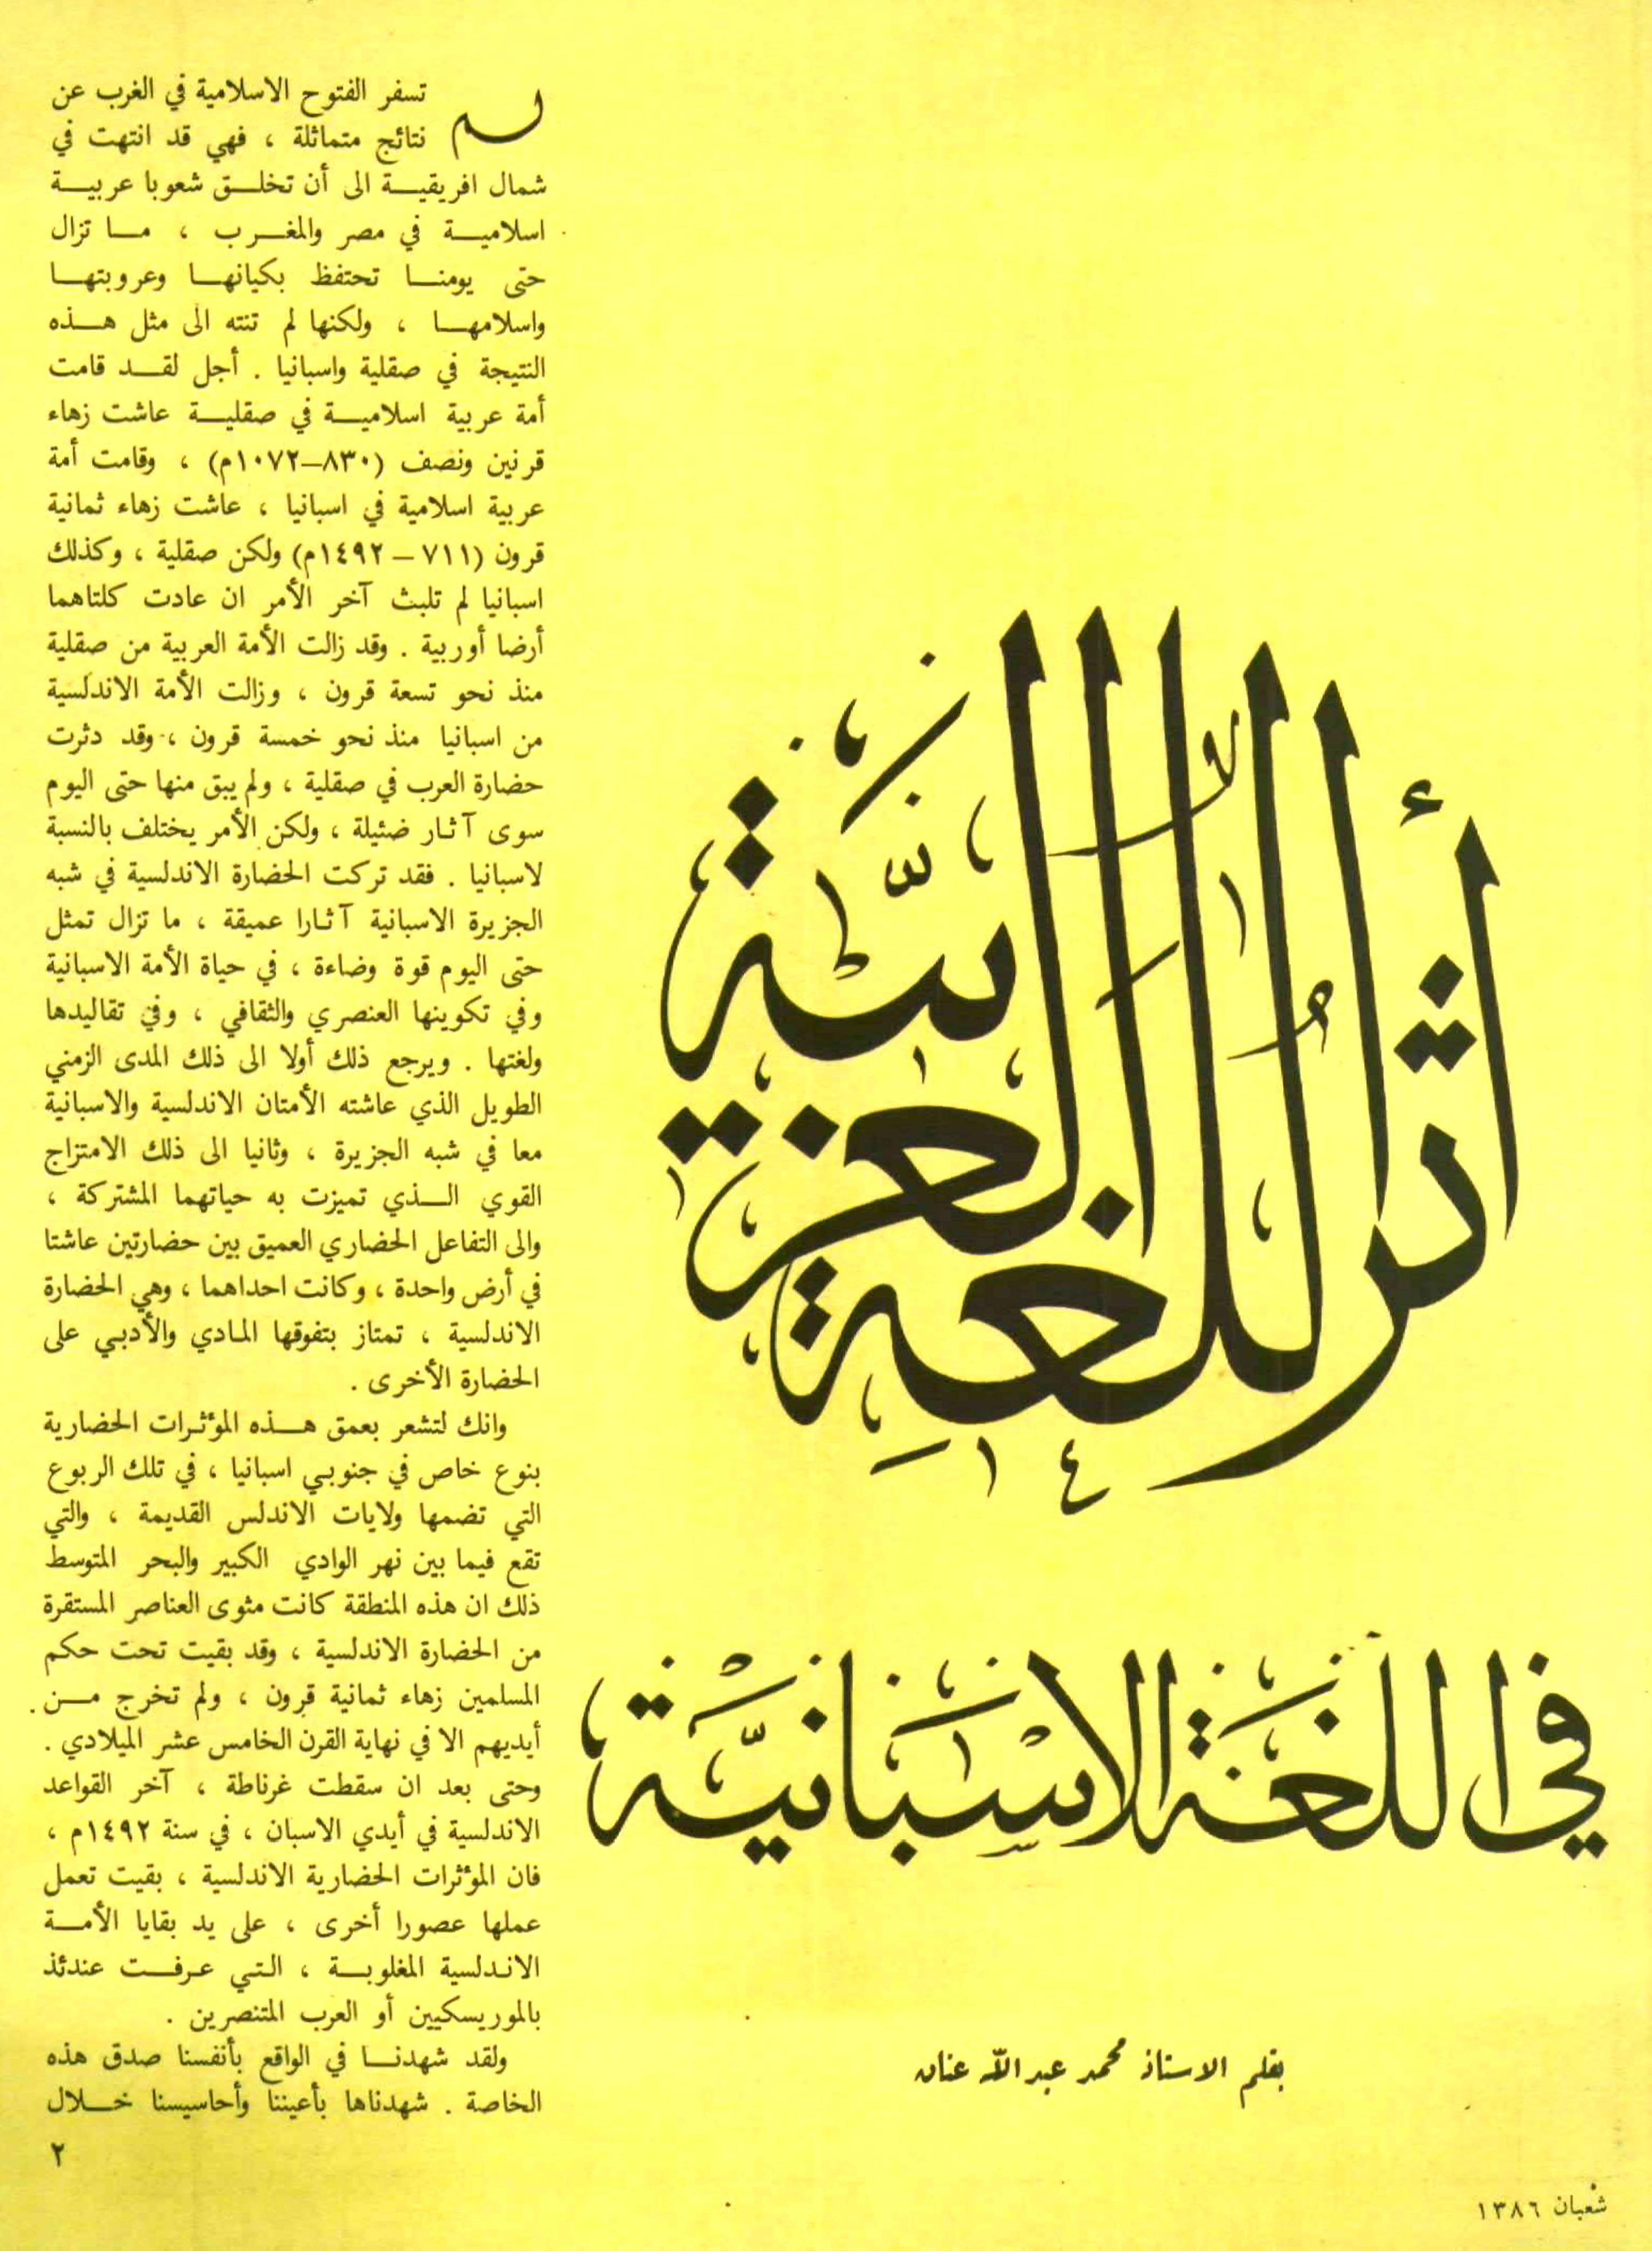 أثر اللغة العربية
في اللغة الاسبانية
بقلم الاستاذ محمد عبد الله عنان
لم تسفر الفتوح الاسلامية في الغرب عن
نتائج متماثلة ، فهي قد انتهت في
شمال افريقيــة الى أن تخلــق شعوبا عربيــة
اسلاميــة في مصر والمغــرب ، مــا تزال
حتى يومنــا تحتفظ بكيانهــا وعروبتهــا
واسلامهــا ، ولكنها لم تنته الى مثل هــذه
النتيجة في صقلية واسبانيا . أجل لقــد قامت
أمة عربية اسلاميــة في صقليــة عاشت زهاء
قرنين ونصف (٨٣٠–١٠٧٢م) ، وقامت أمة
عربية اسلامية في اسبانيا ، عاشت زهاء ثمانية
قرون (٧١١ – ١٤٩٢م) ولكن صقلية ، وكذلك
اسبانيا لم تلبث آخر الأمر ان عادت كلتاهما
أرضا أوربية . وقد زالت الأمة العربية من صقلية
منذ نحو تسعة قرون ، وزالت الأمة الاندلسية
من اسبانيا منذ نحو خمسة قرون ، وقد دثرت
حضارة العرب في صقلية ، ولم يبق منها حتى اليوم
سوى آثار ضئيلة ، ولكن الأمر يختلف بالنسبة
لاسبانيا . فقد تركت الحضارة الاندلسية في شبه
الجزيرة الاسبانية آثارا عميقة ، ما تزال تمثل
حتى اليوم قوة وضاءة ، في حياة الأمة الاسبانية
وفي تكوينها العنصري والثقافي ، وفي تقاليدها
ولغتها . ويرجع ذلك أولا الى ذلك المدى الزمني
الطويل الذي عاشته الأمتان الاندلسية والاسبانية
معا في شبه الجزيرة ، وثانيا الى ذلك الامتزاج
القوي الــذي تميزت به حياتهما المشتركة ،
والى التفاعل الحضاري العميق بين حضارتين عاشتا
في أرض واحدة ، وكانت احداهما ، وهي الحضارة
الاندلسية ، تمتاز بتفوقها المادي والأدبي على
الحضارة الأخرى .
وانك لتشعر بعمق هــذه المؤثرات الحضارية
بنوع خاص في جنوبي اسبانيا ، في تلك الربوع
التي تضمها ولايات الاندلس القديمة ، والتي
تقع فيما بين نهر الوادي الكبير والبحر المتوسط
ذلك ان هذه المنطقة كانت مثوى العناصر المستقرة
من الحضارة الاندلسية ، وقد بقيت تحت حكم
المسلمين زهاء ثمانية قرون ، ولم تخرج مــن
أيديهم الا في نهاية القرن الخامس عشر الميلادي .
وحتى بعد ان سقطت غرناطة ، آخر القواعد
الاندلسية في أيدي الاسبان ، في سنة ١٤٩٢م ،
فان المؤثرات الحضارية الاندلسية ، بقيت تعمل
عملها عصورا أخرى ، على يد بقايا الأمــة
الاندلسية المغلوبــة ، التي عرفــت عندئذ
بالموريسكيين أو العرب المتنصرين .
ولقد شهدنــا في الواقع بأنفسنا صدق هذه
الخاصة . شهدناها بأعيننا وأحاسيسنا خــلال
٢
شعبان ١٣٨٦